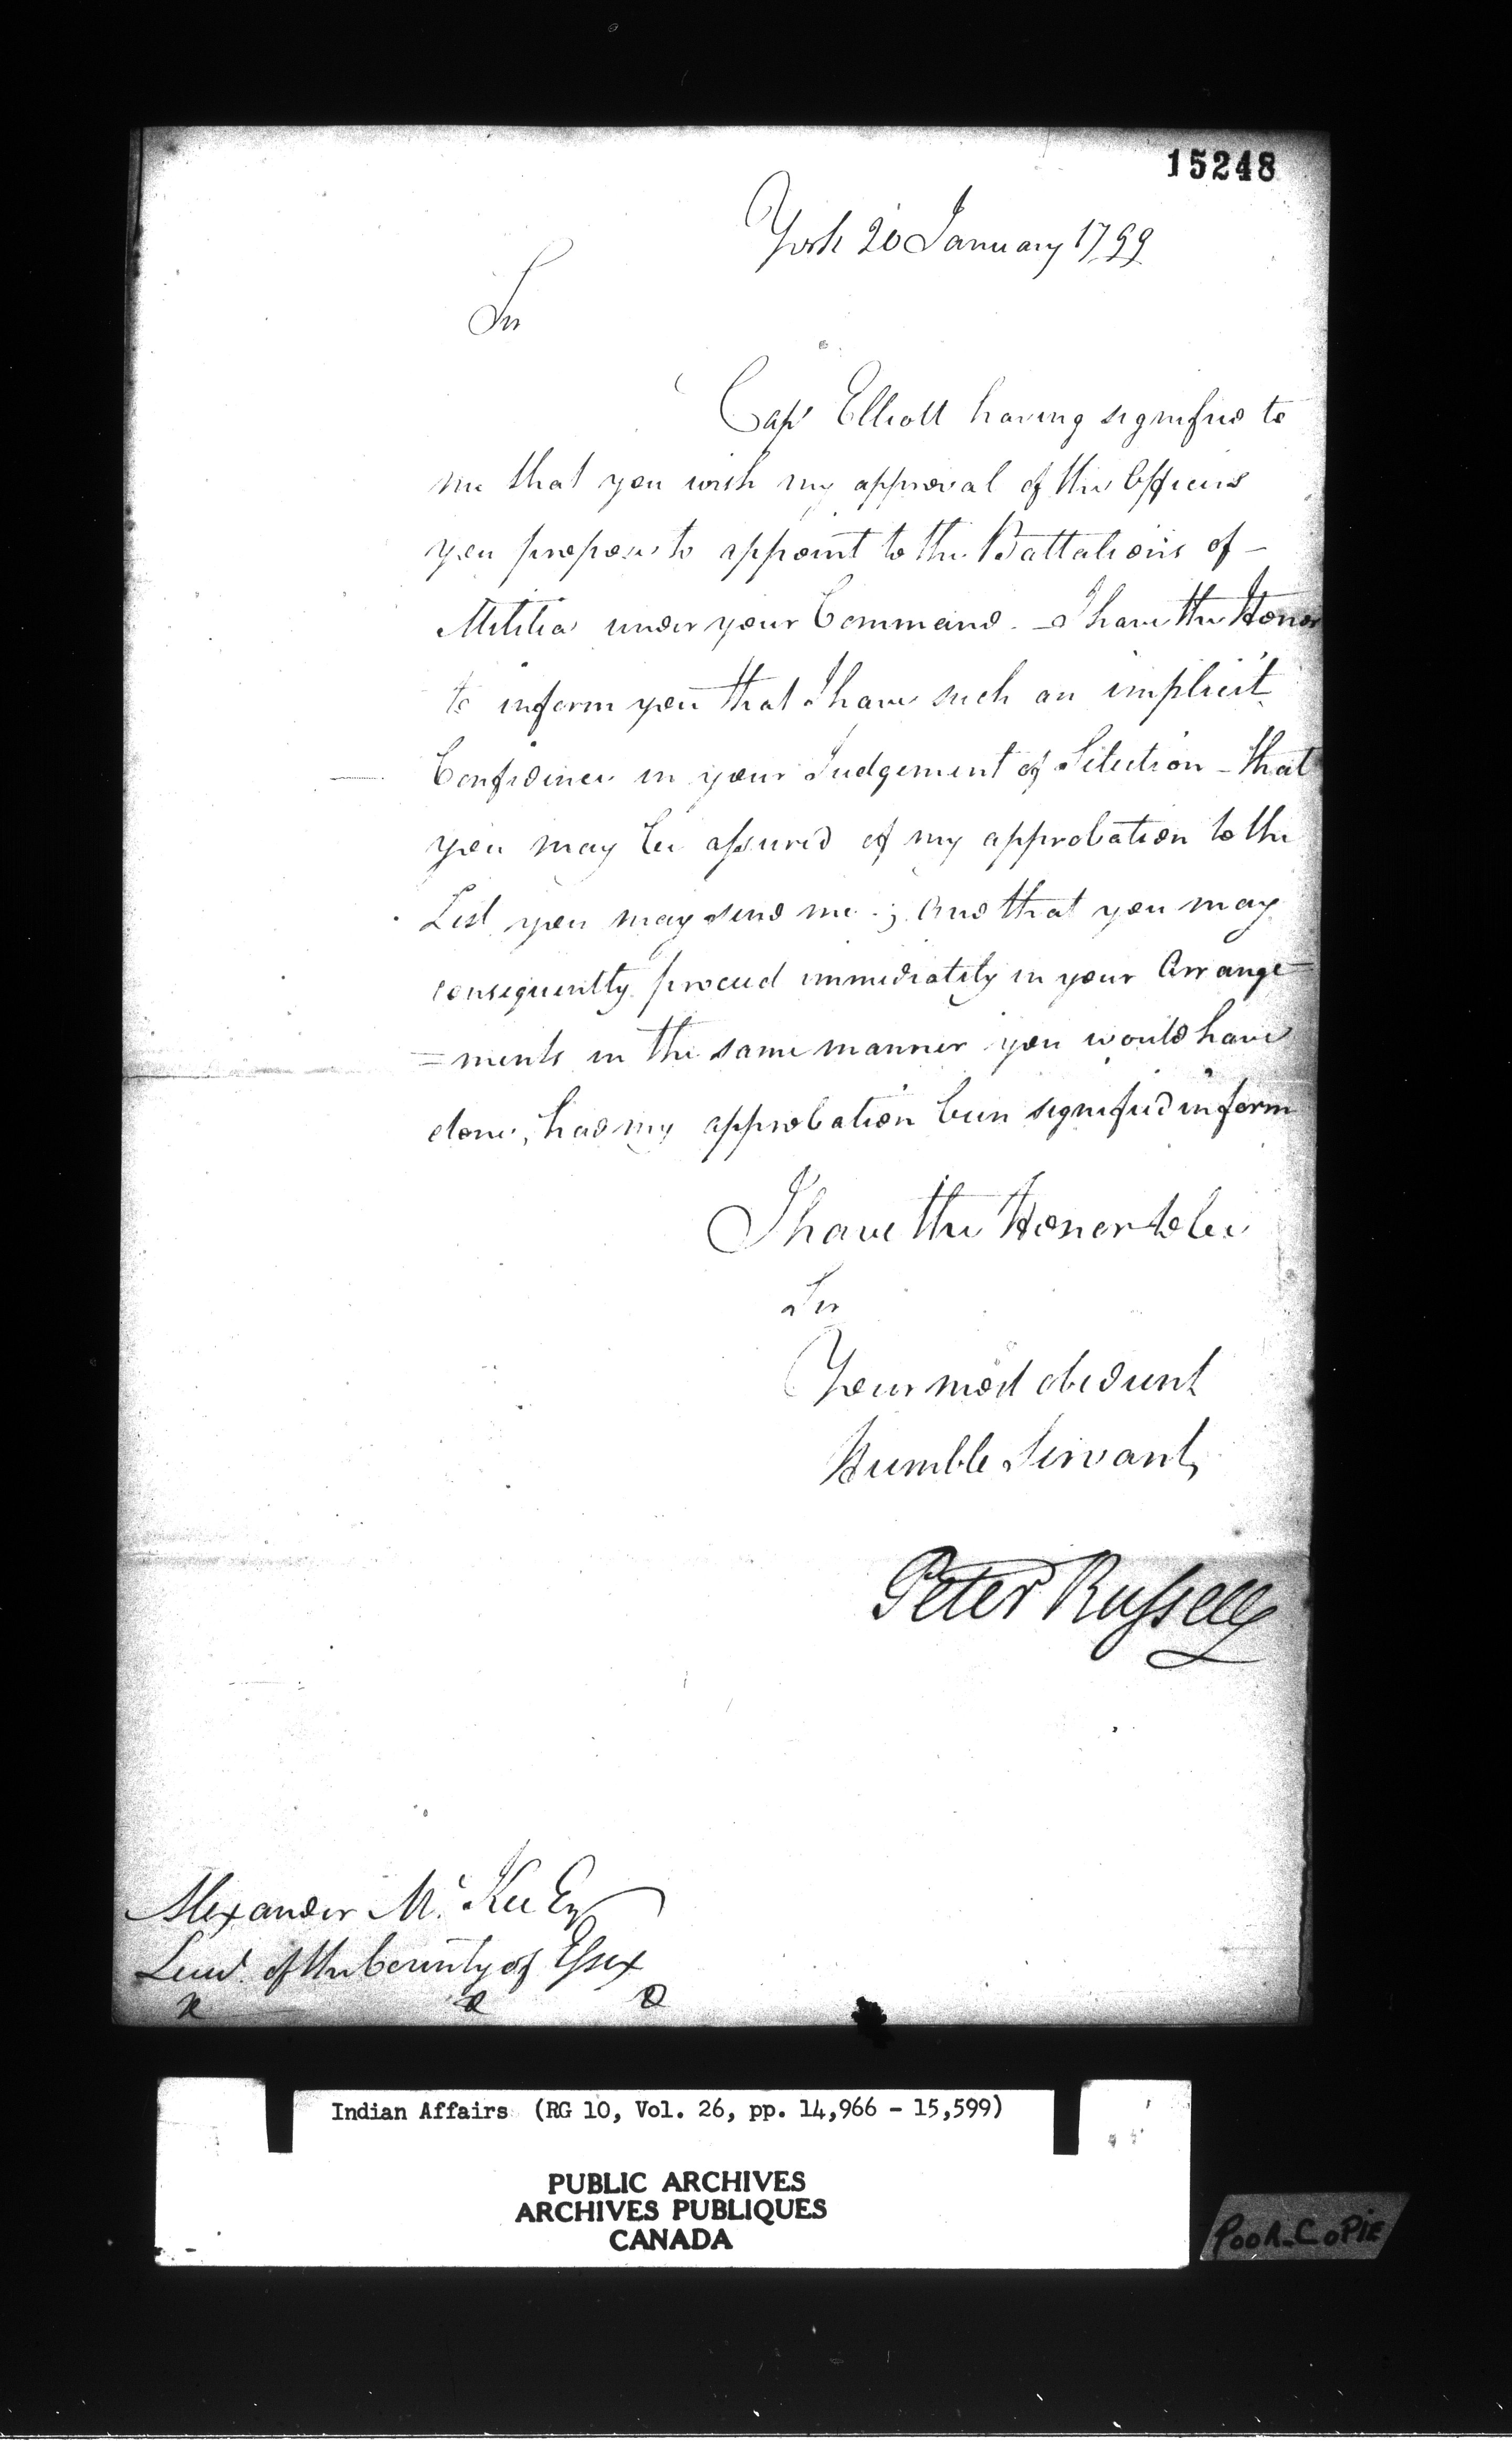 15248
York 20 January 1799
Sir
Capt Elliott having signified to
me that you wish my approval of the Officers
you propose to appoint to the Battalions of -
Militia under your Command. - I have the Honor
to inform you that I have such an implicit
Confidence in your Judgement of Selection - that
you may be assured of my approbation to the
List you may send me; and that you may
consequently proceed immediately in your Arrange
=ments in the same manner you would have
done, had my approbation been signified in form
I have the Honor to be
Sir
Your most obedient
Humble Servant,
Peter Russell
Alexander McKee Esq
Lieut. of the County of Essex
Indian Affairs (RG 10, Vol. 26, pp. 14,966 - 15,599)
PUBLIC ARCHIVES
ARCHIVES PUBLIQUES
CANADA
POOR-COPIE